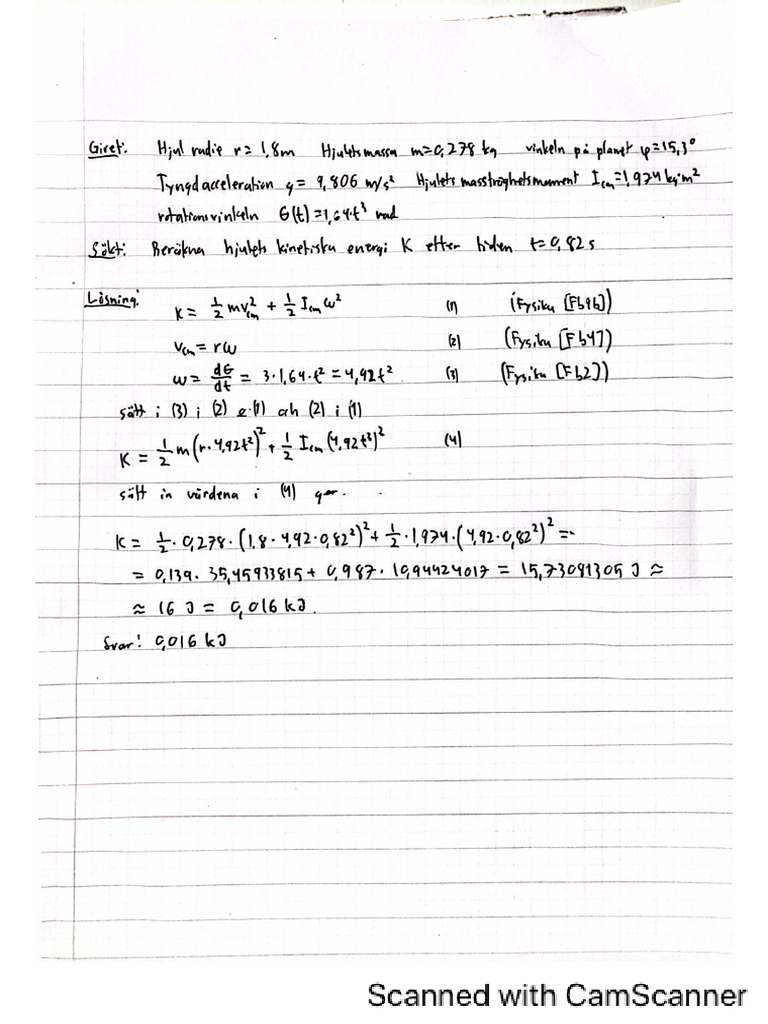 Givet: Hjul radie r = 1,8m Hjulets massa m=0,278 kg vinkeln på planet φ=15,3°
Tyngdacceleration g = 9,806 m/s² Hjulets masströghetsmoment I_cm=1,974 kg·m²
rotationsvinkeln Θ(t)=1,64·t³ rad
Sökt: Beräkna hjulets kinetiska energi K efter tiden t=0,82 s
Lösning:
K = 1/2 mv_cm² + 1/2 I_cm ω² (1) (Fysika [Fb96])
v_cm = rω (2) (Fysika [Fb47])
ω = dΘ/dt = 3·1,64·t² = 4,92t² (3) (Fysika [Fb2])
sätt i (3) i (2) & (1) och (2) i (1)
K = 1/2 m(r·4,92t²)² + 1/2 I_cm (4,92t²)² (4)
sätt in värdena i (4) ger.
K = 1/2 · 0,278 · (1,8 · 4,92 · 0,82²)² + 1/2 · 1,974 · (4,92 · 0,82²)² =
= 0,139 · 35,45933815 + 0,987 · 10,94424017 = 15,73081305 J ≈
≈ 16 J = 0,016 kJ.
Svar! 0,016 kJ
Scanned with CamScanner